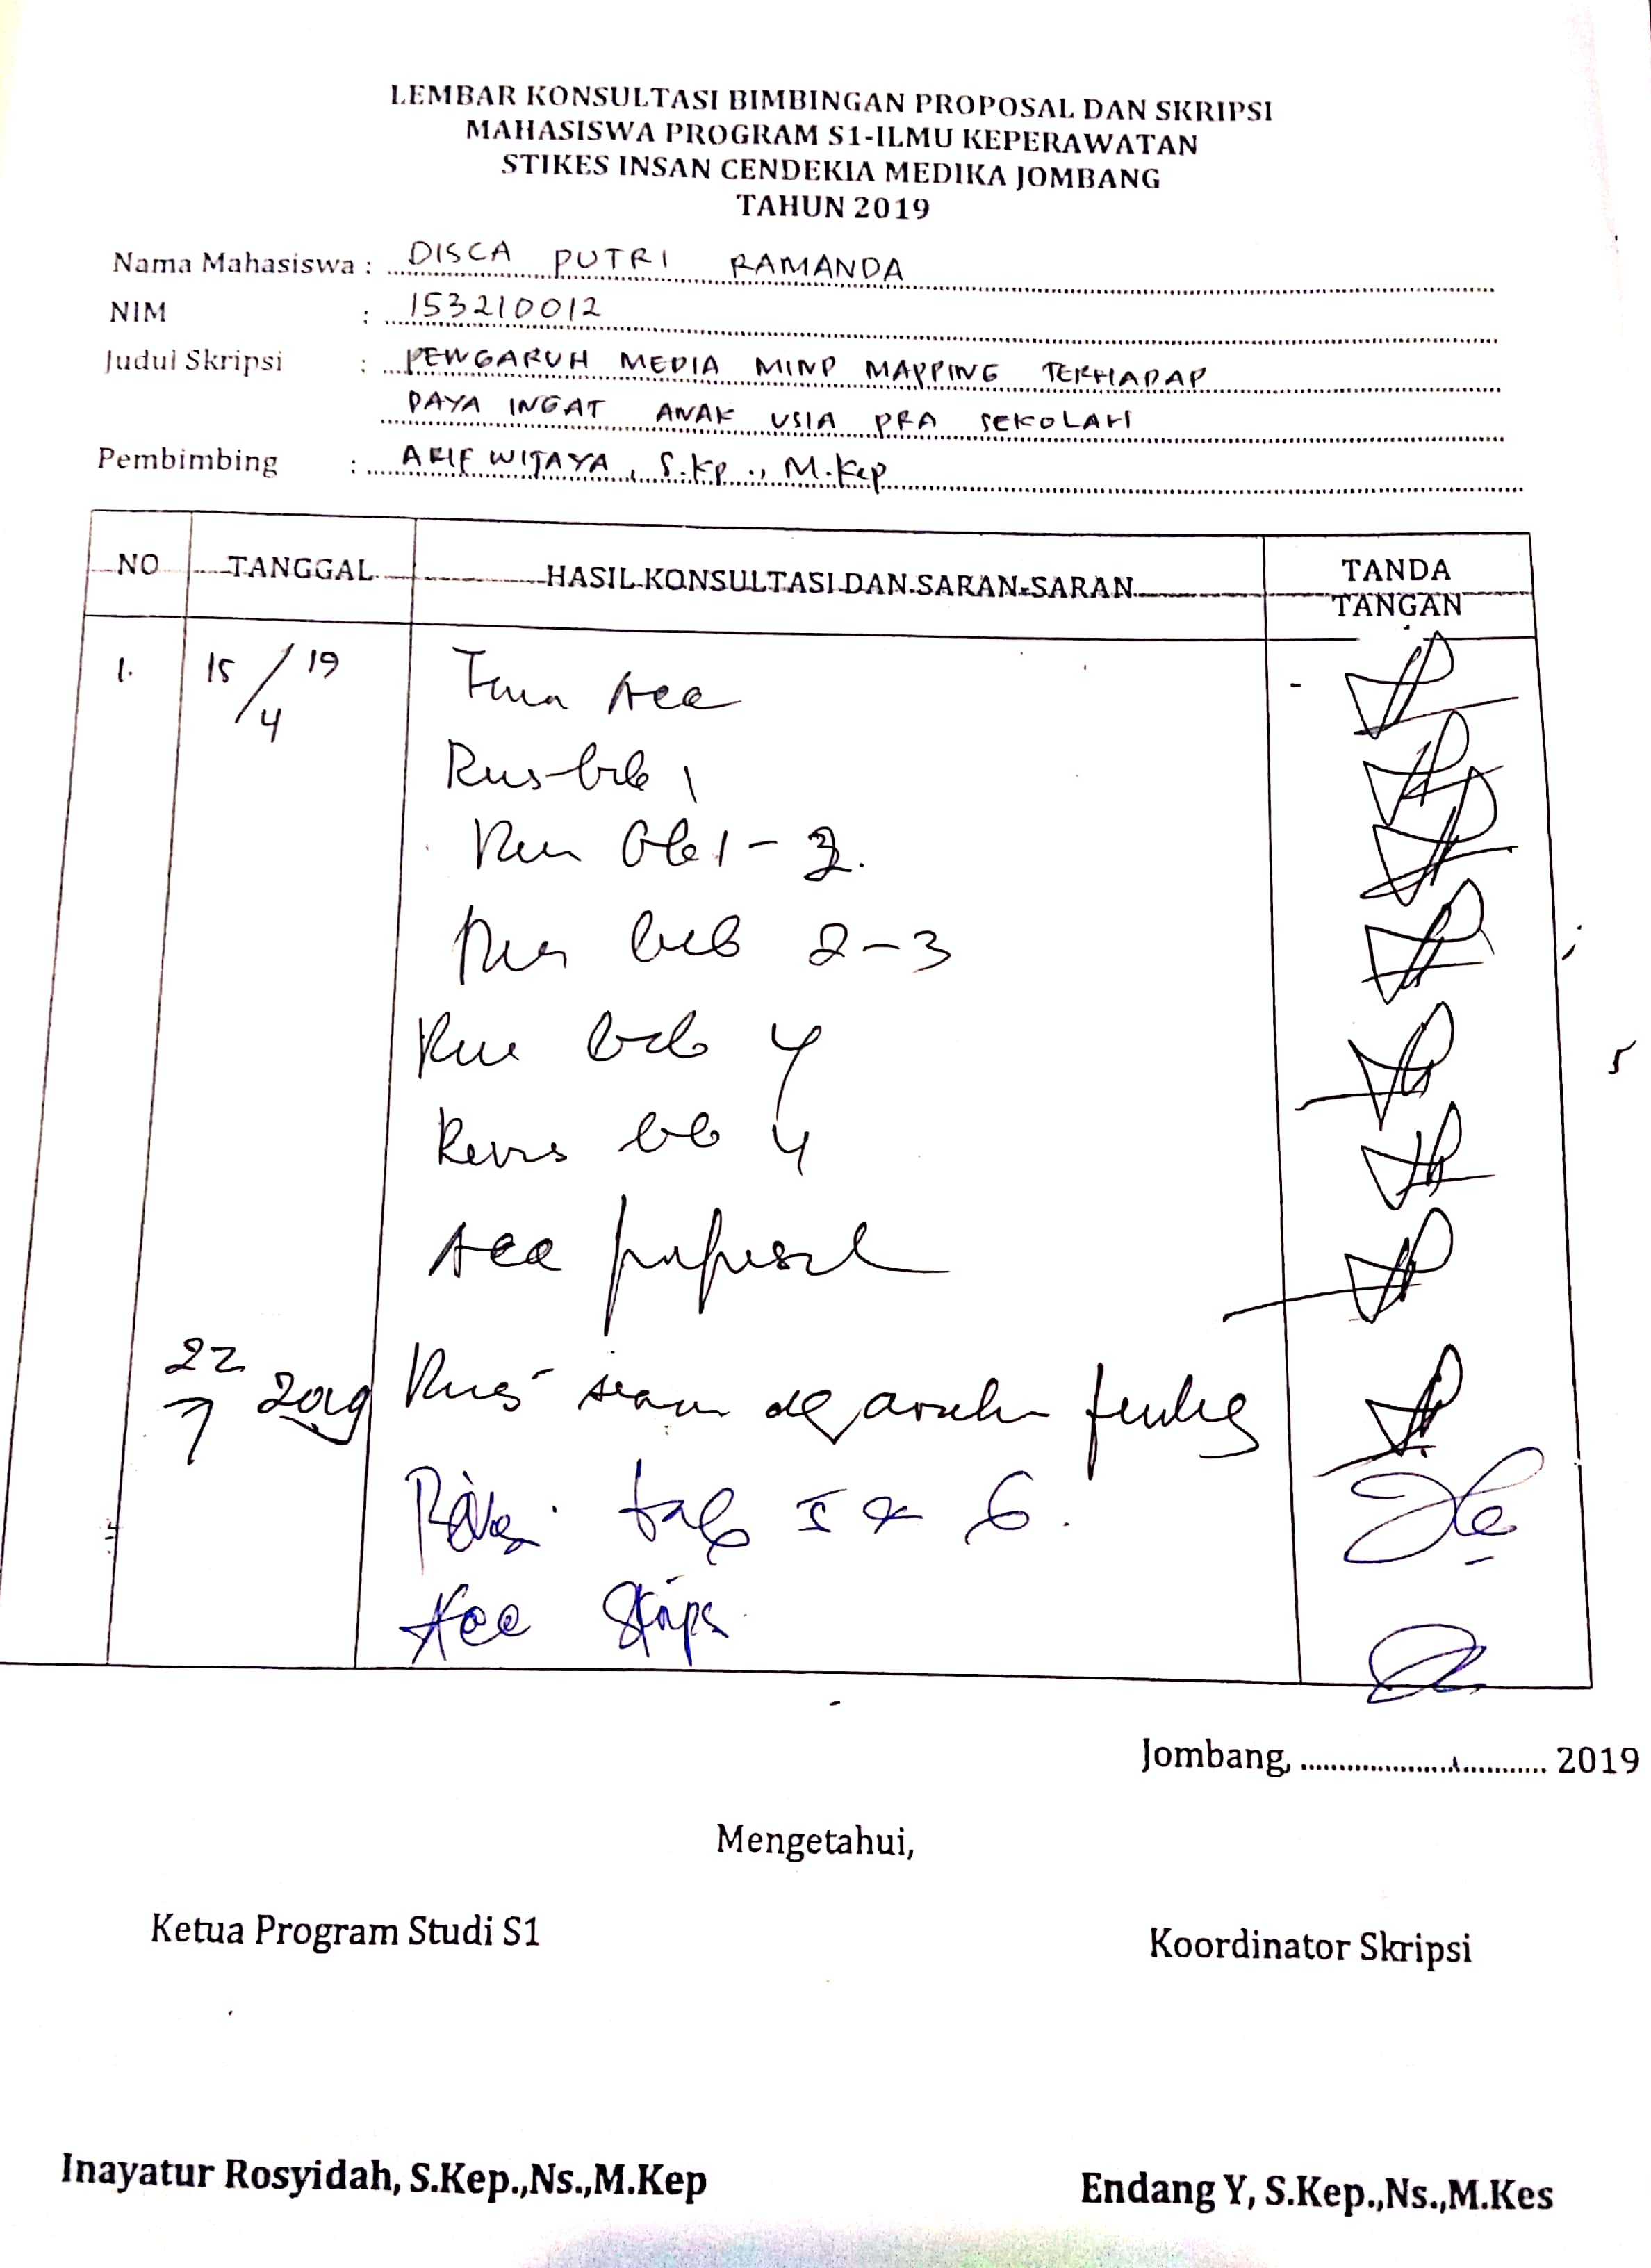 LEMBAR KONSULTASI BIMBINGAN PROPOSAL DAN SKRIPSI
MAHASISWA PROGRAM S1-ILMU KEPERAWATAN
STIKES INSAN CENDEKIA MEDIKA JOMBANG
TAHUN 2019
Nama Mahasiswa : DISCA PUTRI RAMANDA
NIM : 153210012
Judul Skripsi : PENGARUH MEDIA MIND MAPPING TERHADAP
DAYA INGAT ANAK USIA PRA SEKOLAH
Pembimbing : ARIF WIJAYA, S.Kp., M.Kep
NO TANGGAL HASIL KONSULTASI DAN SARAN-SARAN TANDA TANGAN
1. 15/4 19 Acc
bab 1
bab 1-3.
bab 2-3
bab 4
Revisi bab 4
Acc proposal
22/7 2019
6.
Acc Skripsi
Jombang, ........................... 2019
Mengetahui,
Ketua Program Studi S1 Koordinator Skripsi
Inayatur Rosyidah, S.Kep.,Ns.,M.Kep Endang Y, S.Kep.,Ns.,M.Kes